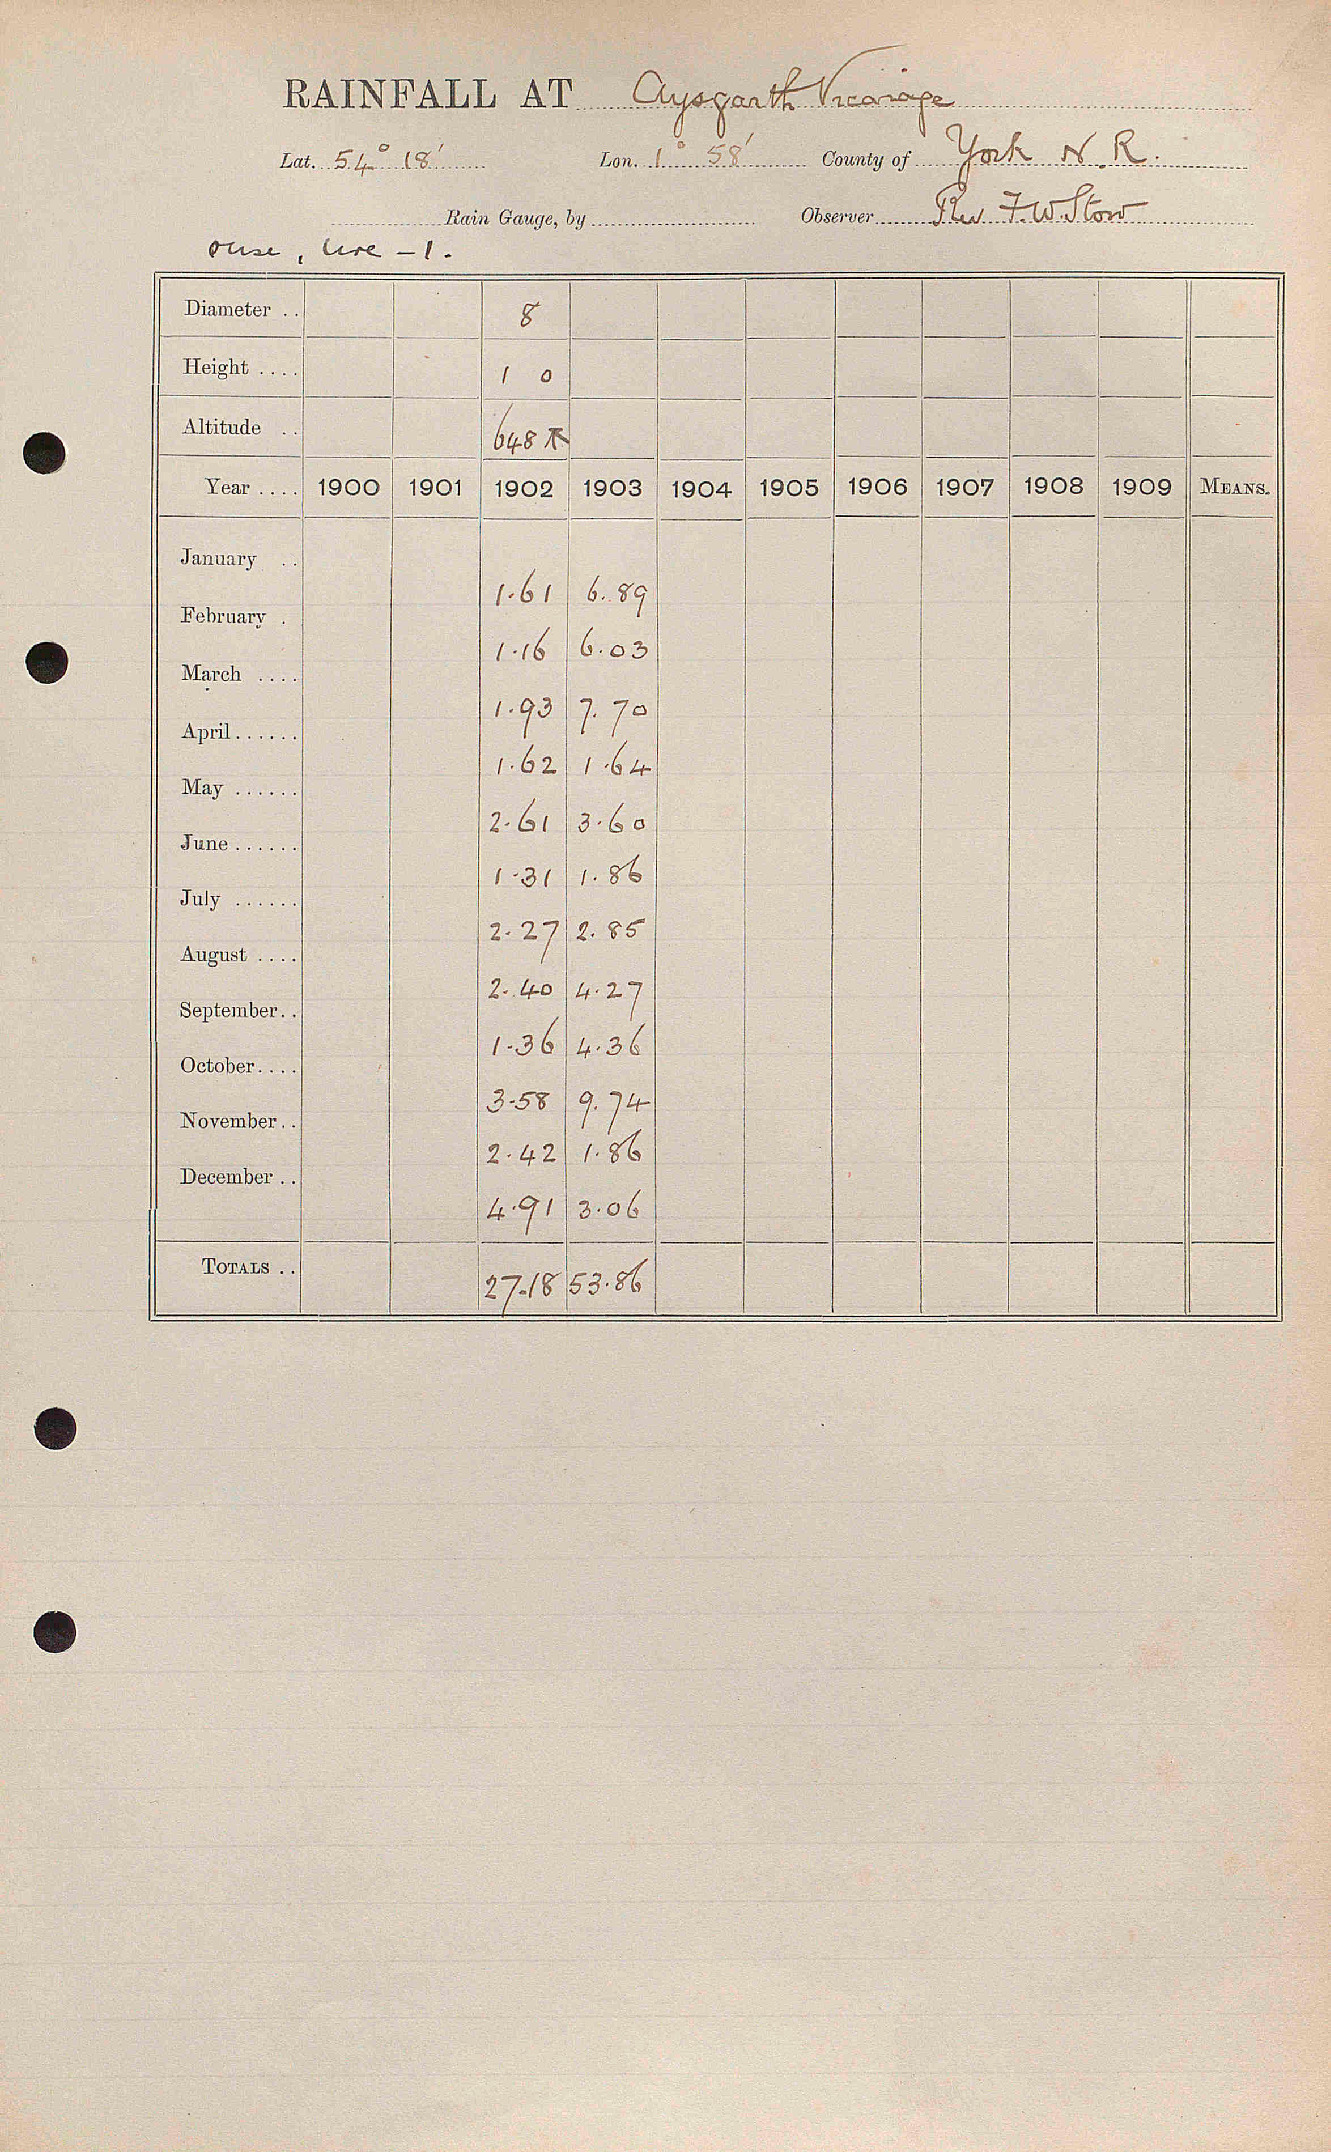 RAINFALL AT Aysgarth Vicarage
Lat. 54° 18' Lon. 1° 58' County of York N.R.
Rain Gauge, by Observer Rev F.W. Stow
Ouse, Ure - 1.
Diameter .. 8
Height .... 1 0
Altitude .. 648
Year .... 1900 1901 1902 1903 1904 1905 1906 1907 1908 1909 MEANS.
January .. 1.61 6.89
February . 1.16 6.03
March .... 1.93 7.70
April...... 1.62 1.64
May ...... 2.61 3.60
June ...... 1.31 1.86
July ...... 2.27 2.85
August .... 2.40 4.27
September.. 1.36 4.36
October.... 3.58 9.74
November.. 2.42 1.86
December .. 4.91 3.06
TOTALS .. 27.18 53.86